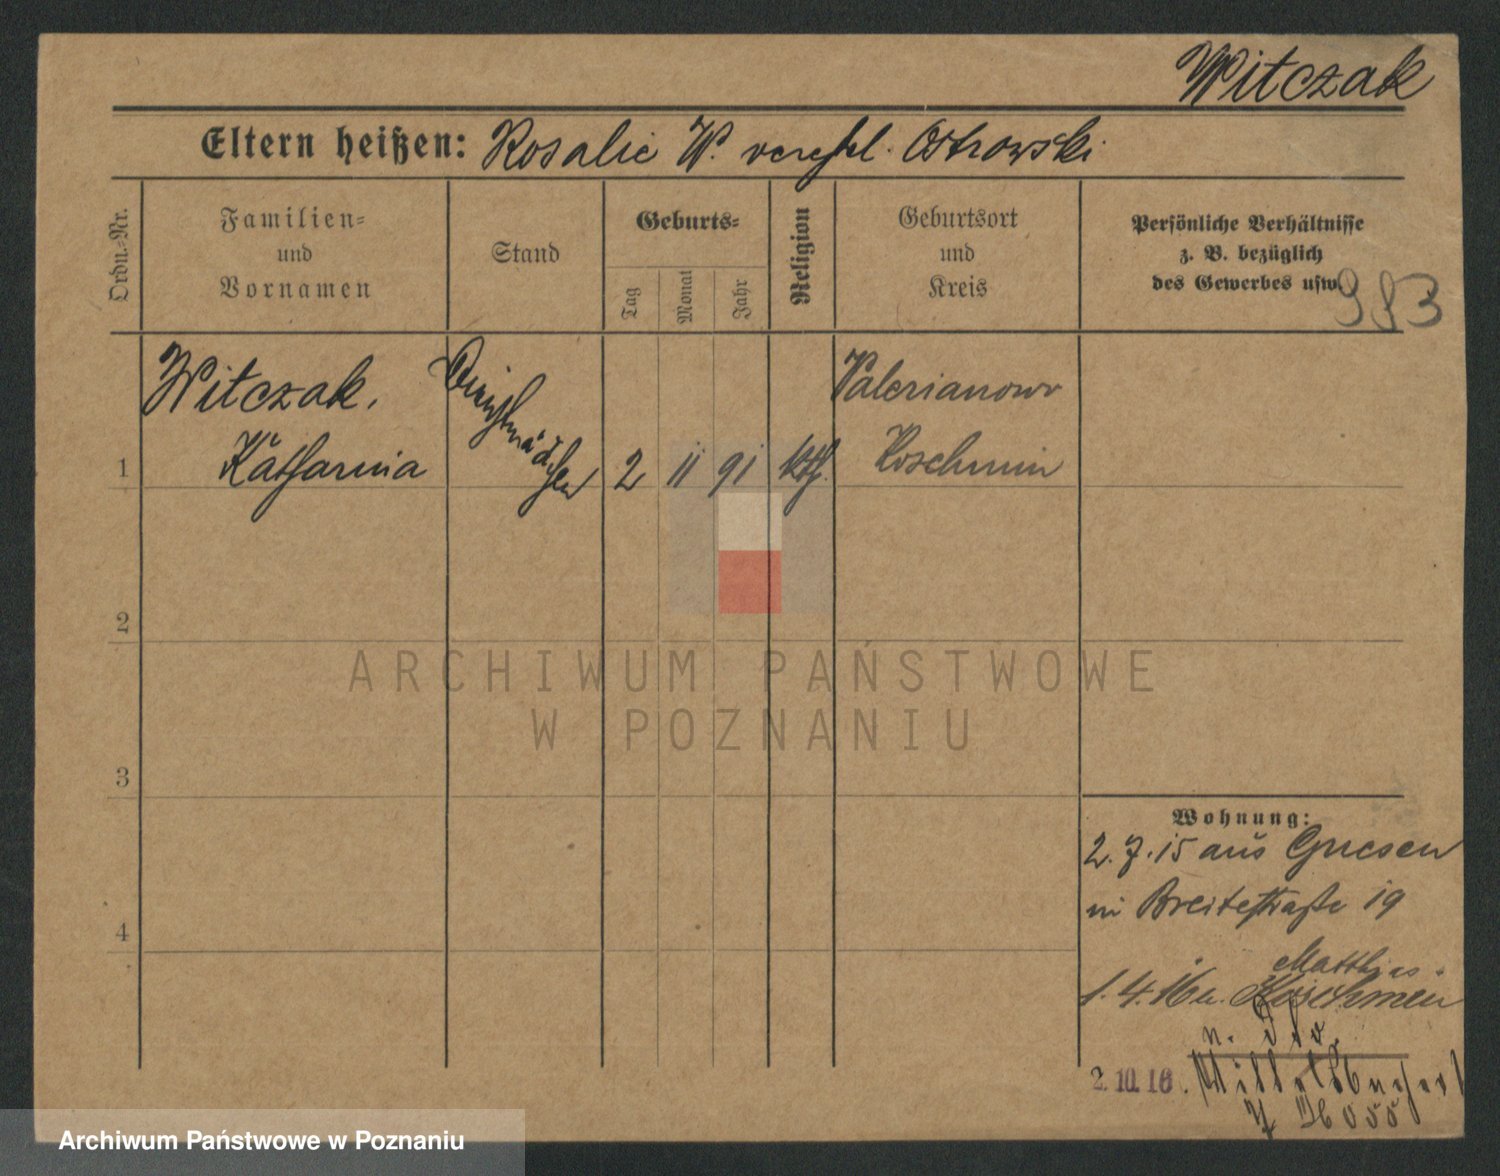 Witczak
Eltern heißen: Rosalie W. verehel. Ostrowski
Ordn.=Nr.
Familien=
und
Vornamen
Stand
Geburts=
Tag
Monat
Jahr
Religion
Geburtsort
und
Kreis
Persönliche Verhältnisse
z. B. bezüglich
des Gewerbes usw.
983
1
Witczak,
Katharina
Dienstmädchen
2
11
91
kth.
Valerianowo
Koschmin
2
3
4
Wohnung:
2.7.15 aus Gnesen
in Breitestraße 19
Matthias
1.4.16 n. Koschmin
2.10.16.
ARCHIWUM PAŃSTWOWE
W POZNANIU
Archiwum Państwowe w Poznaniu